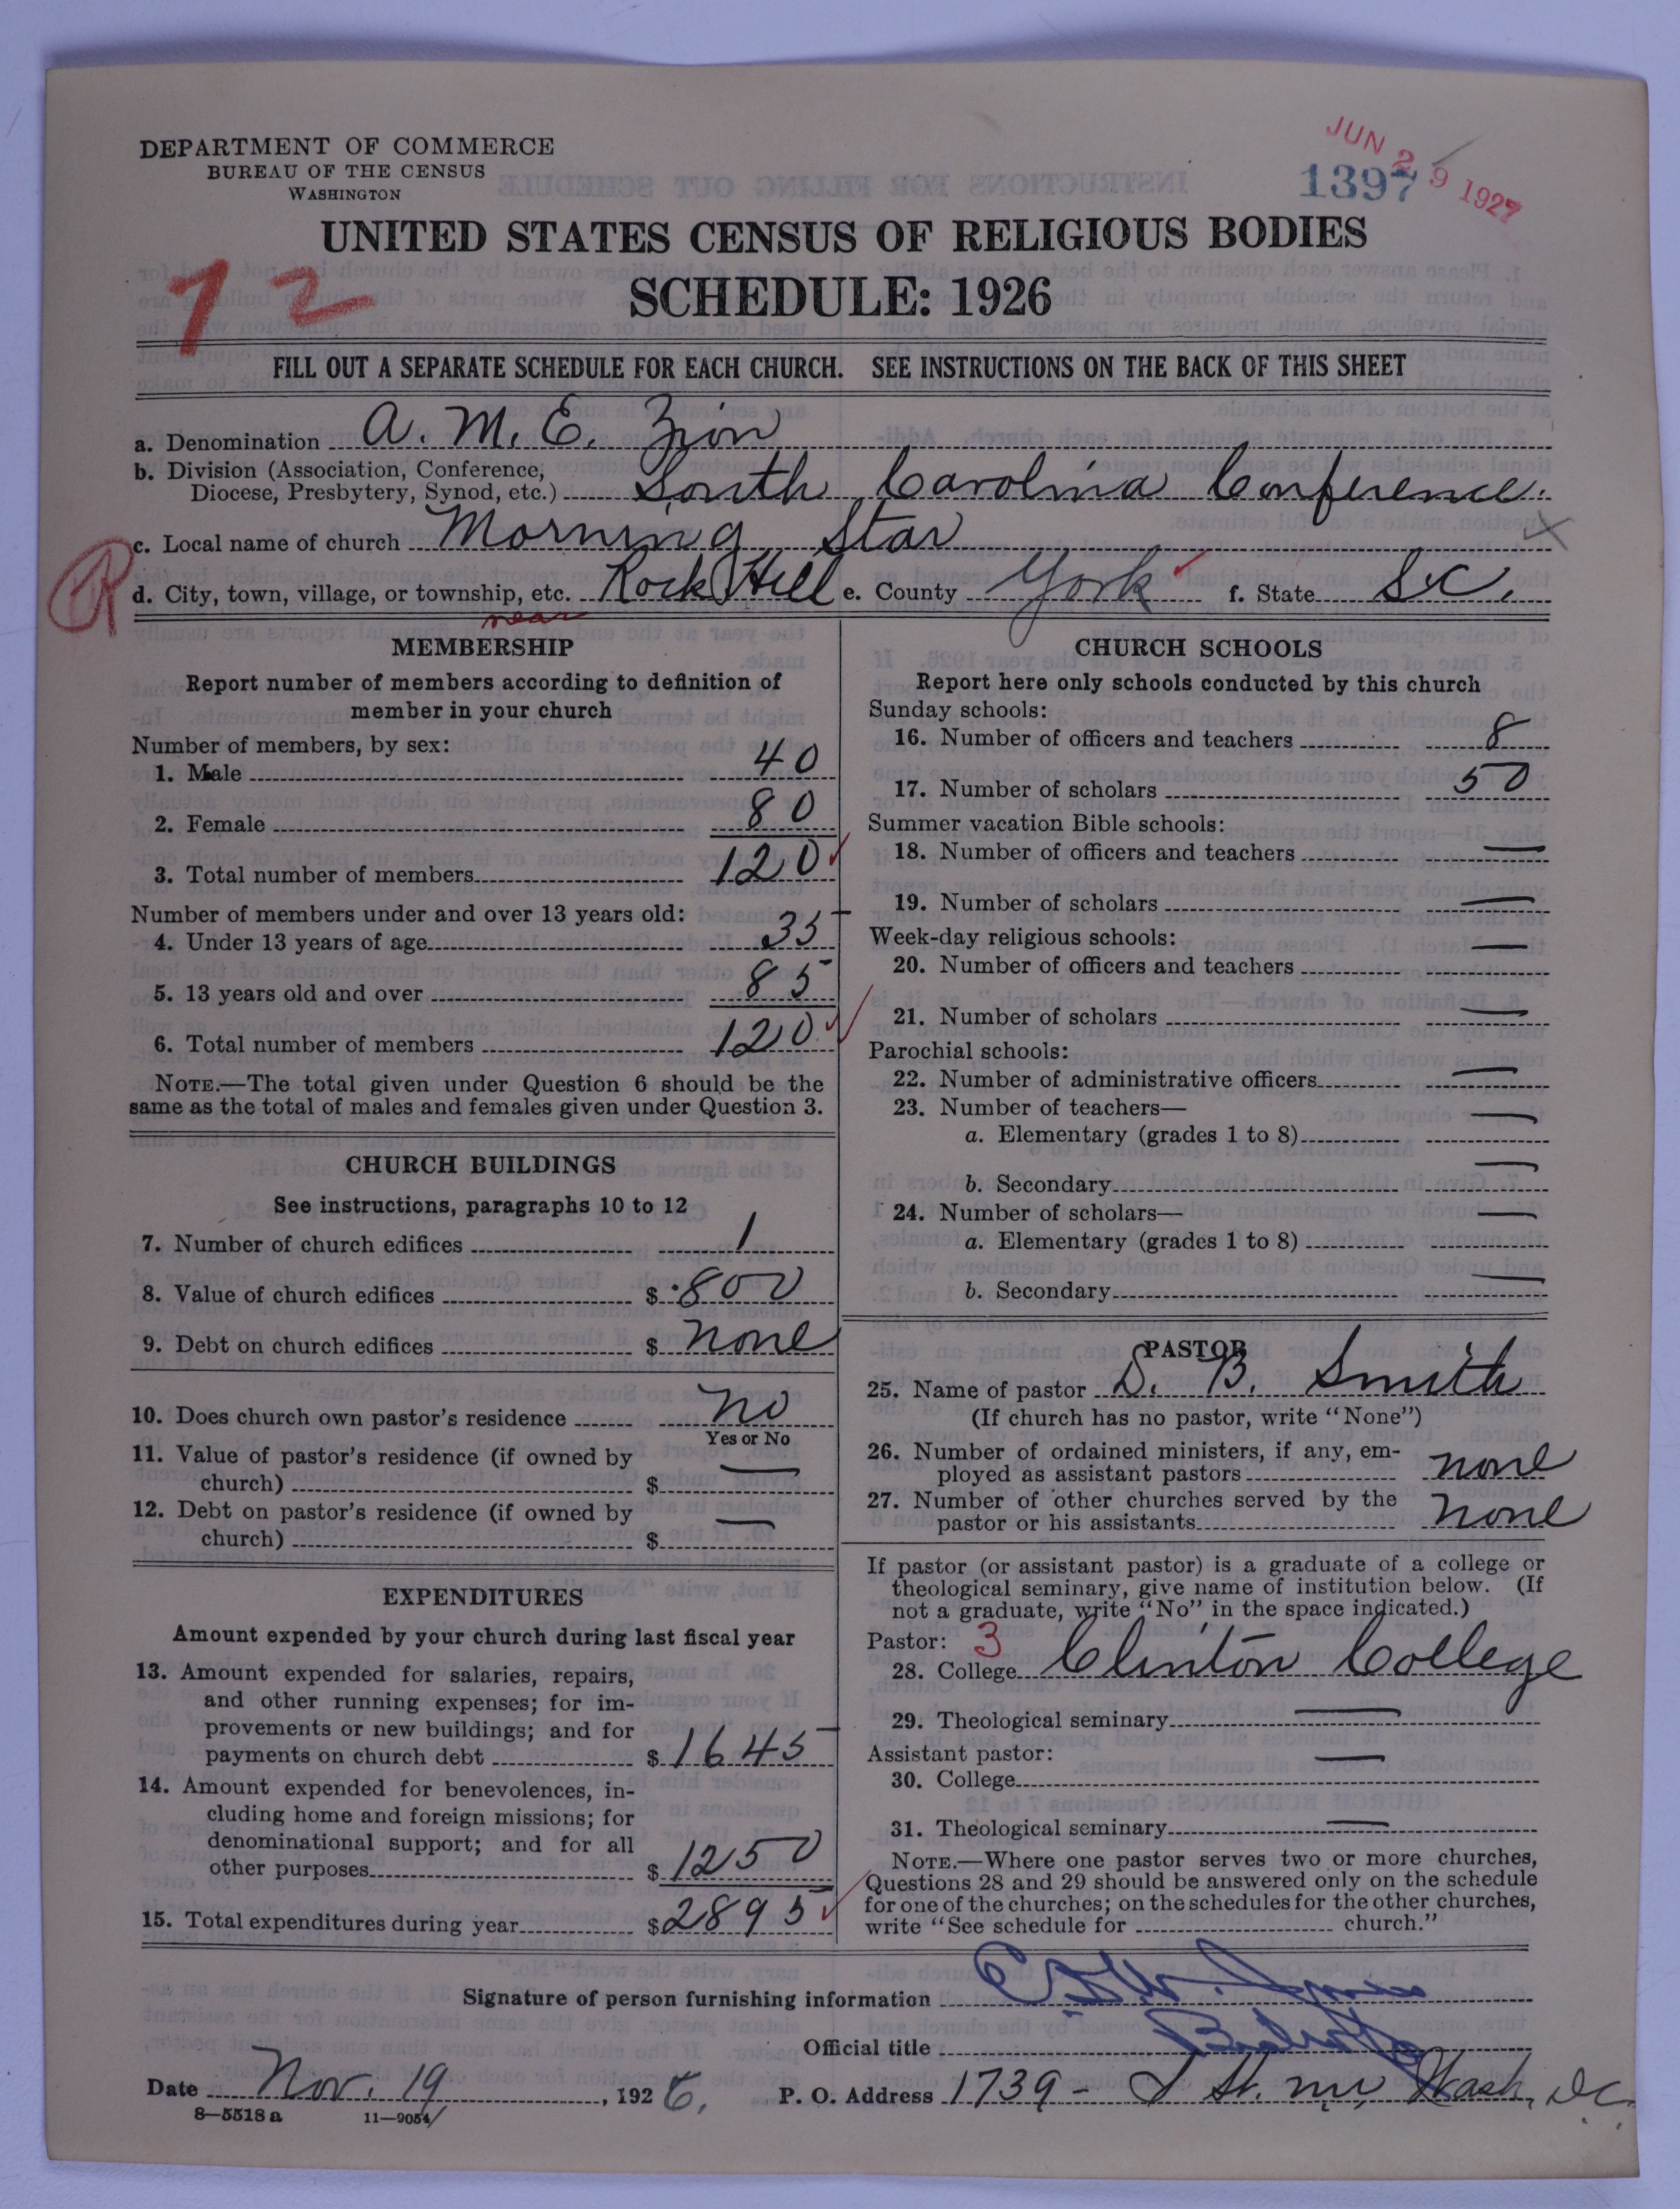 DEPARTMENT OF COMMERCE
BUREAU OF THE CENSUS
WASHINGTON
JUN 29 1927
1397
UNITED STATES CENSUS OF RELIGIOUS BODIES
SCHEDULE: 1926
72
FILL OUT A SEPARATE SCHEDULE FOR EACH CHURCH. SEE INSTRUCTIONS ON THE BACK OF THIS SHEET
a. Denomination A. M. E. Zion
b. Division (Association, Conference,
Diocese, Presbytery, Synod, etc.) South Carolina Conference.
c. Local name of church Morning Star
R
d. City, town, village, or township, etc. Rock Hill e. County York f. State S.C.
near
MEMBERSHIP
Report number of members according to definition of
member in your church
Number of members, by sex:
1. Male 40
2. Female 80
3. Total number of members 120
Number of members under and over 13 years old:
4. Under 13 years of age 35
5. 13 years old and over 85
6. Total number of members 120
NOTE.—The total given under Question 6 should be the
same as the total of males and females given under Question 3.
CHURCH BUILDINGS
See instructions, paragraphs 10 to 12
7. Number of church edifices 1
8. Value of church edifices $ 800
9. Debt on church edifices $ none
10. Does church own pastor's residence no
Yes or No
11. Value of pastor's residence (if owned by
church) $ —
12. Debt on pastor's residence (if owned by
church) $ —
EXPENDITURES
Amount expended by your church during last fiscal year
13. Amount expended for salaries, repairs,
and other running expenses; for im-
provements or new buildings; and for
payments on church debt $ 1645
14. Amount expended for benevolences, in-
cluding home and foreign missions; for
denominational support; and for all
other purposes $ 1250
15. Total expenditures during year $ 2895
CHURCH SCHOOLS
Report here only schools conducted by this church
Sunday schools:
16. Number of officers and teachers 8
17. Number of scholars 50
Summer vacation Bible schools:
18. Number of officers and teachers —
19. Number of scholars —
Week-day religious schools:
20. Number of officers and teachers —
21. Number of scholars —
Parochial schools:
22. Number of administrative officers —
23. Number of teachers—
a. Elementary (grades 1 to 8) —
b. Secondary —
24. Number of scholars—
a. Elementary (grades 1 to 8) —
b. Secondary —
PASTOR
25. Name of pastor D. B. Smith
(If church has no pastor, write "None")
26. Number of ordained ministers, if any, em-
ployed as assistant pastors none
27. Number of other churches served by the
pastor or his assistants none
If pastor (or assistant pastor) is a graduate of a college or
theological seminary, give name of institution below. (If
not a graduate, write "No" in the space indicated.)
Pastor: 3
28. College Clinton College
29. Theological seminary —
Assistant pastor:
30. College —
31. Theological seminary —
NOTE.—Where one pastor serves two or more churches,
Questions 28 and 29 should be answered only on the schedule
for one of the churches; on the schedules for the other churches,
write "See schedule for church."
Signature of person furnishing information
Official title
Date Nov. 19, 1926. P. O. Address 1739 - St. nw, Wash, DC.
8—5518a 11—9054